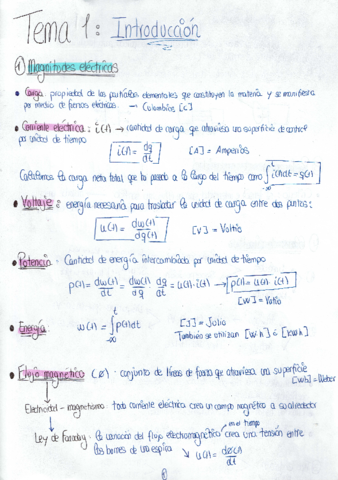 Tema 1: Introducción
① Magnitudes eléctricas
• Carga: propiedad de las partículas elementales que constituyen la materia y se manifiesta
por medio de fuerzas eléctricas. → Culombios [C]
• Corriente eléctrica: i(t) → cantidad de carga que atraviesa una superficie de control
por unidad de tiempo
i(t) = dq/dt [A] = Amperios
la carga neta total que ha pasado a lo largo del tiempo como ∫_{-∞}^{t} i(t)dt = q(t)
• Voltaje: energía necesaria para trasladar la unidad de carga entre dos puntos:
u(t) = dw(t)/dq(t) [V] = Voltio
• Potencia: Cantidad de energía intercambiada por unidad de tiempo
p(t) = dw(t)/dt = dw(t)/dq · dq/dt = u(t)·i(t) → p(t) = u(t)·i(t)
[W] = Vatio
• Energía w(t) = ∫_{-∞}^{t} p(t)dt [J] = Julio
También se utilizan [Wh] ó [kWh]
• Flujo magnético (Ø): conjunto de líneas de fuerza que atraviesa una superficie
[Wb] = Weber
Electricidad - magnetismo: toda corriente eléctrica crea un campo magnético a su alrededor
en el tiempo
Ley de Faraday: la variación del flujo electromagnético crea una tensión entre
los bornes de una espira ↘ u(t) = dØ(t)/dt